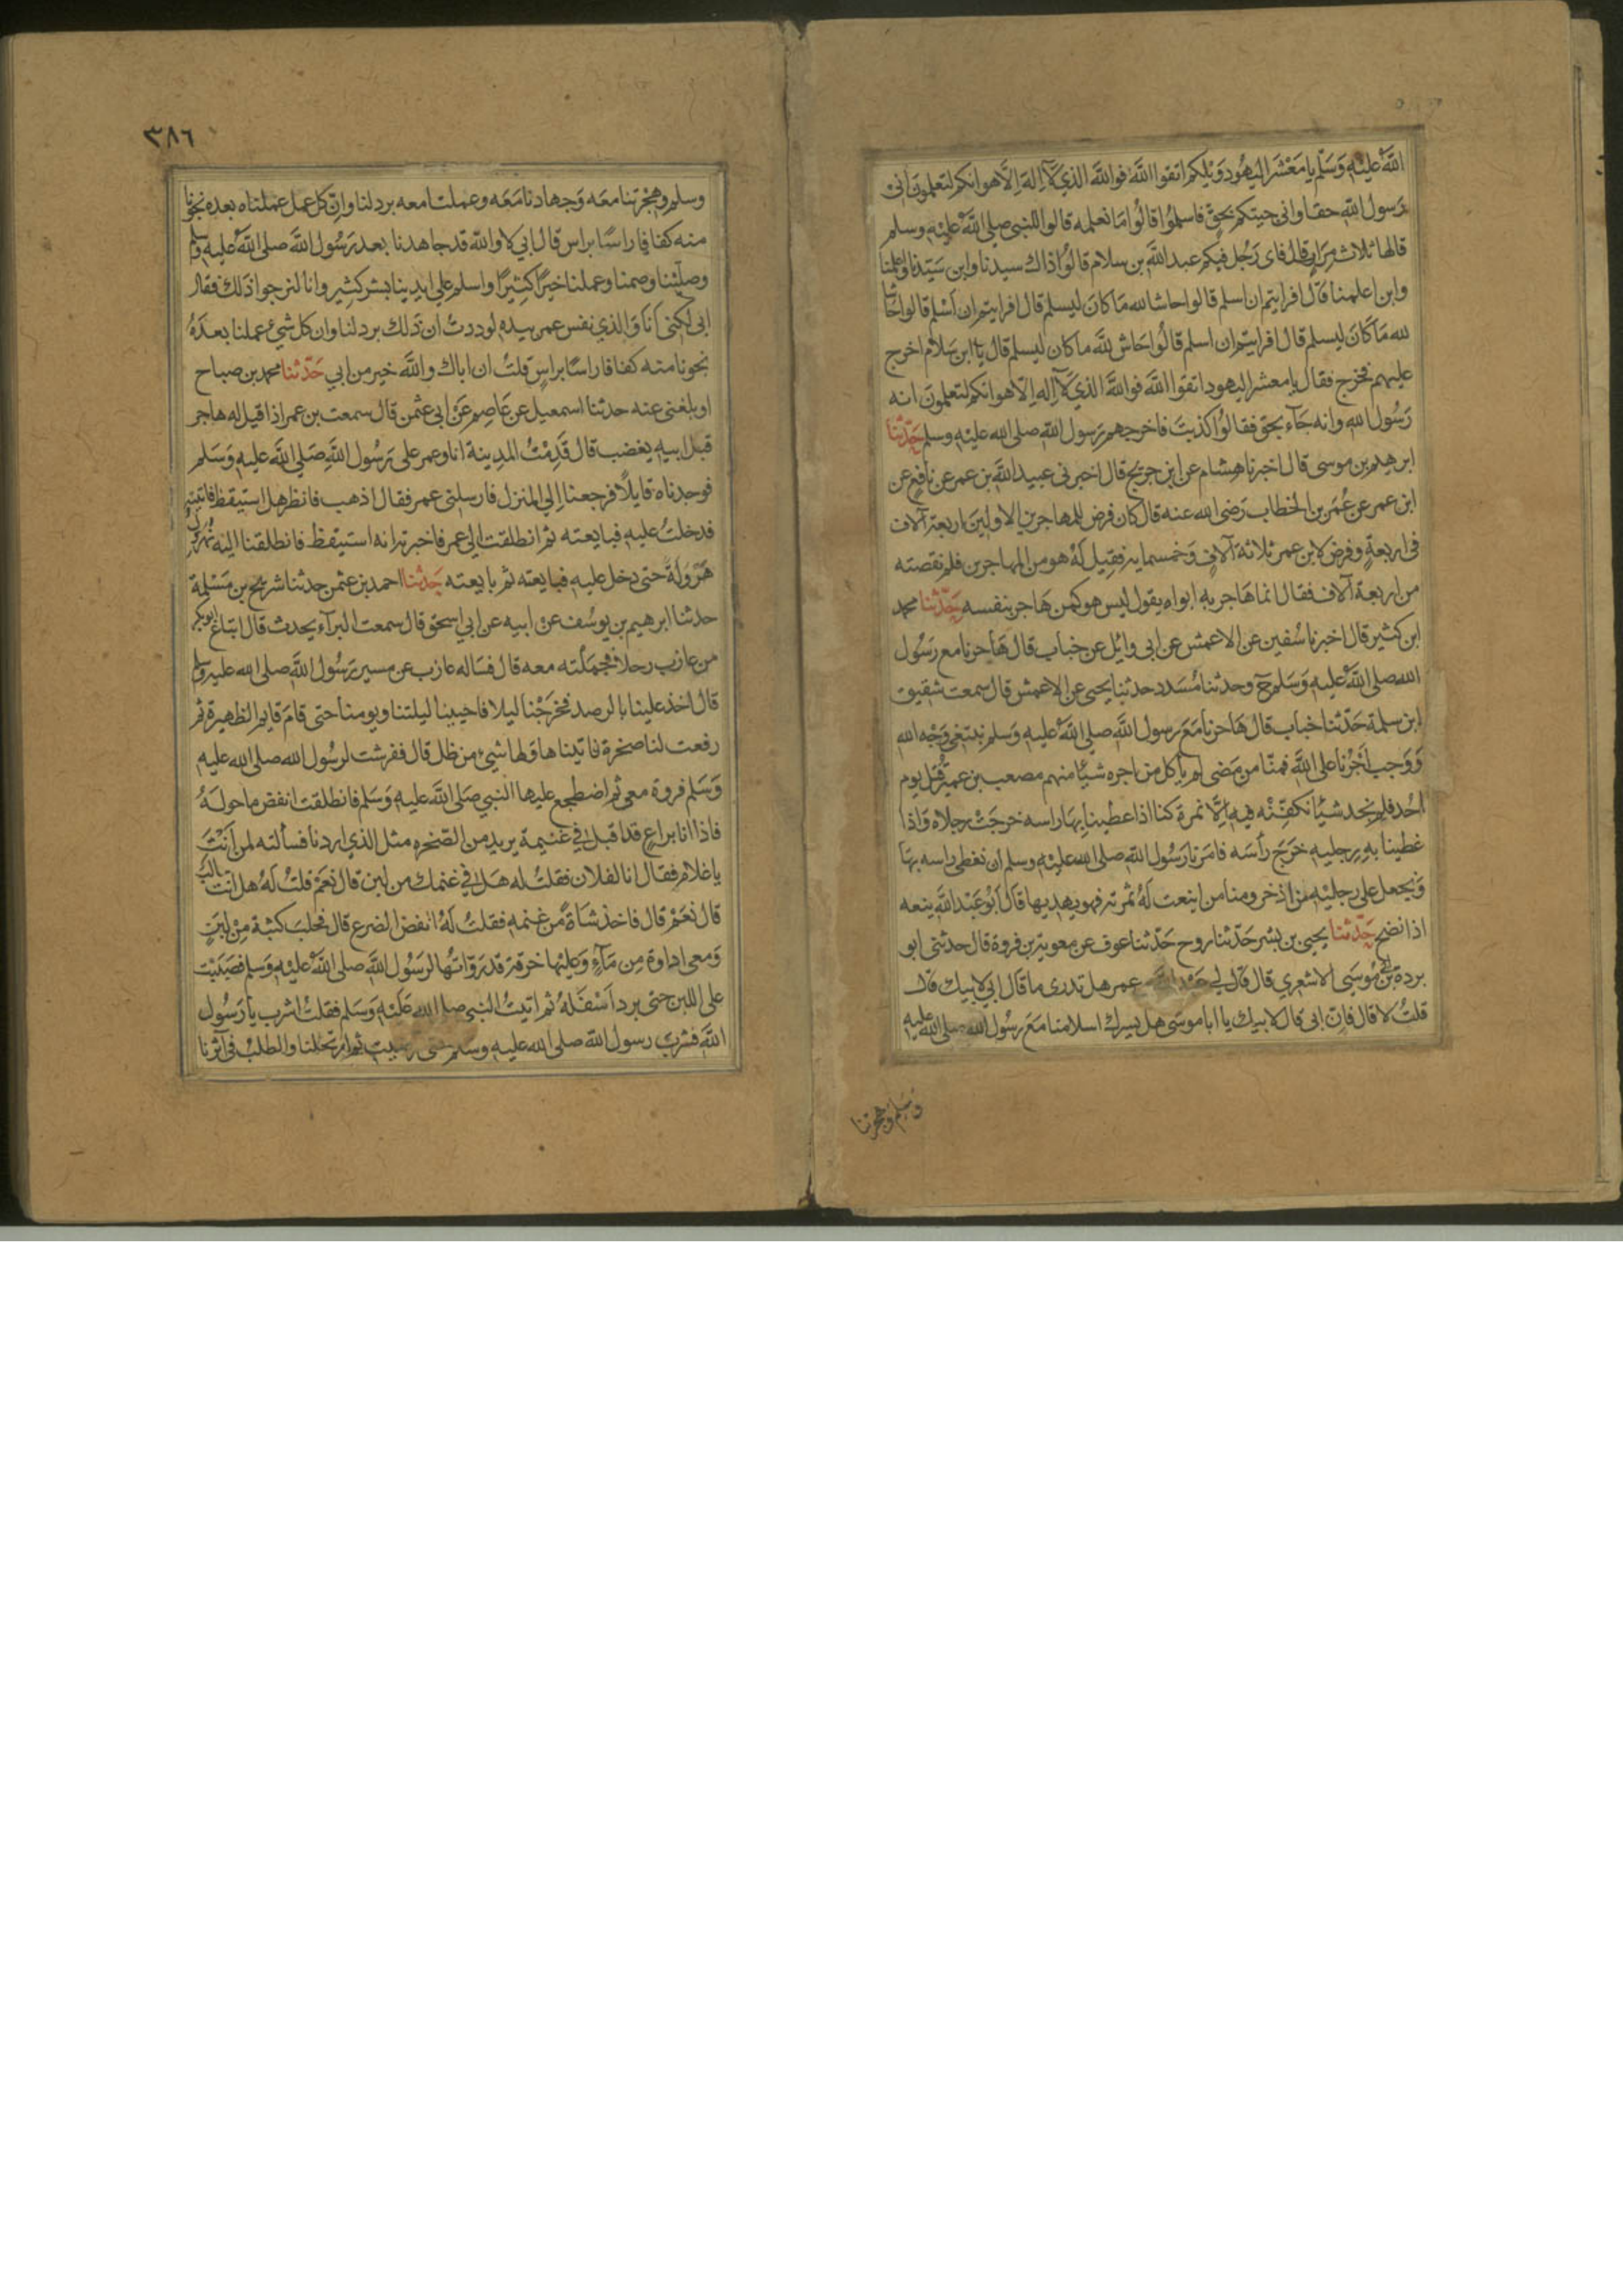 الله عليه وسلم يا معشر اليهود ويلكم اتقوا الله فوالله الذي لا اله الا هو انكم لتعلمون اني
رسول الله حقا واني جيتكم بحق فاسلموا قالوا ما نعلمه قالوا للنبي صلى الله عليه وسلم
قالها ثلاث مرار قال فاى رجل فيكم عبد الله بن سلام قالوا ذاك سيدنا وابن سيدنا واعلمنا
وابن اعلمنا قال افرايتم ان اسلم قالوا حاشا لله ما كان ليسلم قال افرايتم ان اسلم قالوا حاشا
لله ما كان ليسلم قال افرايتم ان اسلم قالوا حاش لله ما كان ليسلم قال يا ابن سلام اخرج
عليهم فخرج فقال يا معشر اليهود اتقوا الله فوالله الذي لا اله الا هو انكم لتعلمون انه
رسول الله وانه جآء بحق فقالوا كذبت فاخرجهم رسول الله صلى الله عليه وسلم حدثنا
ابرهيم بن موسى قال اخبرنا هشام عن ابن جريج قال اخبرني عبيد الله بن عمر عن نافع عن
ابن عمر عن عمر بن الخطاب رضى الله عنه قال كان فرض للمهاجرين الاولين اربعة آلاف
في اربعة وفرض لابن عمر ثلاثة آلاف وخمسماية فقيل له هو من المهاجرين فلم نقصته
من اربعة آلاف فقال انما هاجر به ابواه يقول ليس هو كمن هاجر بنفسه حدثنا محمد
ابن كثير قال اخبرنا سفين عن الاعمش عن ابى وائل عن خباب قال هاجرنا مع رسول
الله صلى الله عليه وسلم ح وحدثنا مسدد حدثنا يحيى عن الاعمش قال سمعت شقيق
ابن سلمة حدثنا خباب قال هاجرنا مع رسول الله صلى الله عليه وسلم نبتغي وجه الله
ووجب اجرنا على الله فمنا من مضى لم ياكل من اجره شيئا منهم مصعب بن عمير قتل يوم
احد فلم نجد شيئا نكفنه فيه الا نمرة كنا اذا غطينا بها راسه خرجت رجلاه واذا
غطينا به رجليه خرج رأسه فامرنا رسول الله صلى الله عليه وسلم ان نغطى راسه بها
ونجعل على رجليه من اذخر ومنا من اينعت له ثمرته فهو يهدبها قال ابو عبد الله ينعه
اذا نضج حدثنا يحيى بن بشر حدثنا روح حدثنا عوف عن معوية بن قروة قال حدثنى ابو
بردة بن ابي موسى الاشعري قال قال لي عبد الله بن عمر هل تدرى ما قال ابي لابيك قال
قلت لا قال فان ابي قال لابيك يا ابا موسى هل يسرك اسلامنا مع رسول الله صلى الله عليه
وسلم وهجرتنا
٣٨٦
وسلم وهجرتنا معه وجهادنا معه وعملنا معه برد لنا وان كل عمل عملناه بعده نجونا
منه كفافا راسا براس قال ابي لا والله قد جاهدنا بعد رسول الله صلى الله عليه وسلم
وصلينا وصمنا وعملنا خيرا كثيرا واسلم على ايدينا بشر كثير وانا لنرجوا ذلك فقال
ابي لكني انا والذي نفس عمر بيده لوددت ان ذلك برد لنا وان كل شيء عملنا بعده
نجونا منه كفافا راسا براس قلت ان اباك والله خير من ابي حدثنا محمد بن صباح
او بلغني عنه حدثنا اسمعيل عن عاصم عن ابي عثمن قال سمعت بن عمر اذا قيل له هاجر
قبل ابيه يغضب قال قدمت المدينة انا وعمر على رسول الله صلى الله عليه وسلم
فوجدناه قايلا فرجعنا الى المنزل فارسلني عمر فقال اذهب فانظر هل استيقظ فاتيته
فدخلت عليه فبايعته ثم انطلقت الى عمر فاخبرته انه استيقظ فانطلقنا اليه نهرول
هرولة حتى دخل عليه فبايعته ثم بايعته حدثنا احمد بن عثمن حدثنا شريح بن مسلمة
حدثنا ابرهيم بن يوسف عن ابيه عن ابي اسحق قال سمعت البرآء يحدث قال ابتاع ابو بكر
من عازب رحلا فحملته معه قال فساله عازب عن مسير رسول الله صلى الله عليه وسلم
قال اخذ علينا بالرصد فخرجنا ليلا فاحيينا ليلتنا ويومنا حتى قام قايم الظهيرة ثم
رفعت لنا صخرة فاتيناها ولها شيء من ظل قال ففرشت لرسول الله صلى الله عليه
وسلم فروة معي ثم اضطجع عليها النبي صلى الله عليه وسلم فانطلقت انفض ما حوله
فاذا انا براع قد اقبل في غنيمة يريد من الصخره مثل الذي اردنا فسألته لمن انت
يا غلام فقال انا لفلان فقلت له هل في غنمك من لبن قال نعم قلت له هل انت حالب
قال نعم قال فاخذ شاة من غنمه فقلت له انفض الضرع قال فحلب كثبة من لبن
ومعى اداوة من مآء وعليها خرقة قد روأتها لرسول الله صلى الله عليه وسلم فصببت
على اللبن حتى برد اسفله ثم اتيت النبي صلى الله عليه وسلم فقلت اشرب يا رسول
الله فشرب رسول الله صلى الله عليه وسلم حتى رضيت ثم ارتحلنا والطلب في اثرنا